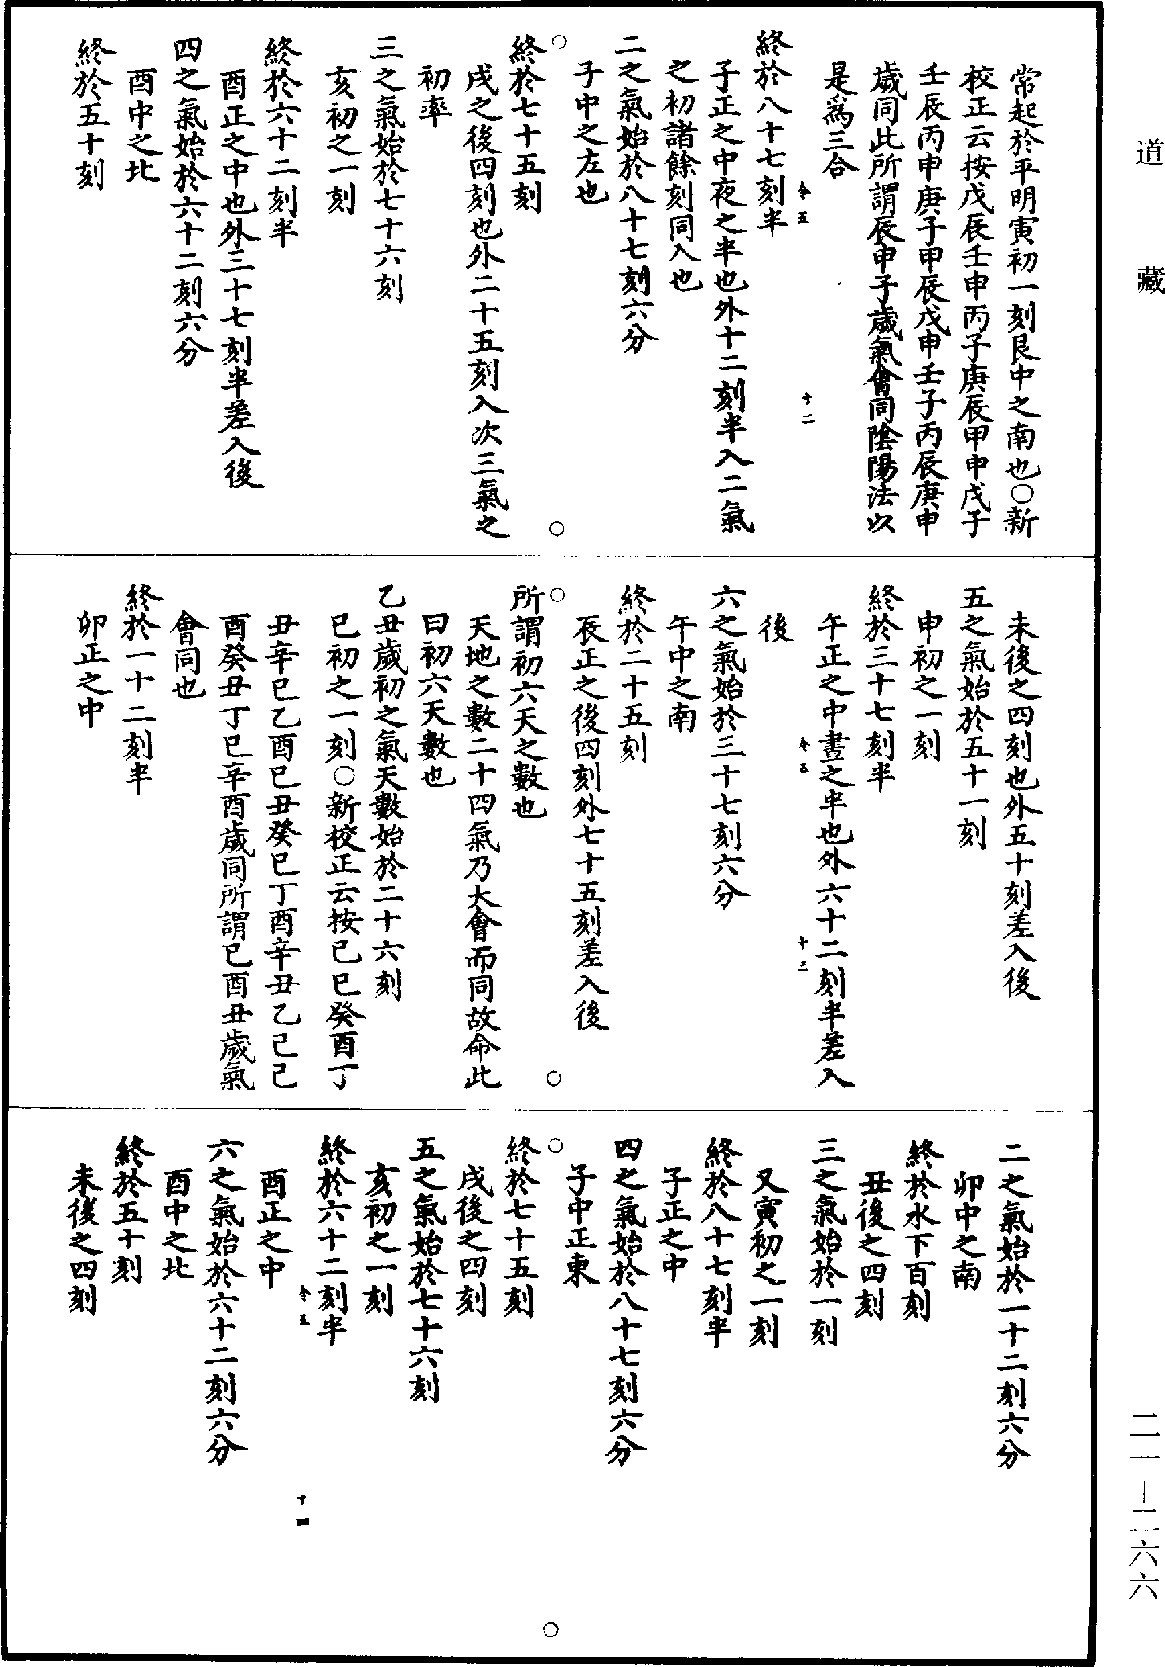 道藏
常起於平明寅初一刻艮中之南也○新
校正云按戊辰壬申丙子庚辰甲申戊子
壬辰丙申庚子甲辰戊申壬子丙辰庚申
歲同此所謂辰申子歲氣會同陰陽法以
是爲三合
令五
十二
終於八十七刻半
子正之中夜之半也外十二刻半入二氣
之初諸餘刻同入也
二之氣始於八十七刻六分
子中之左也
終於七十五刻
戌之後四刻也外二十五刻入次三氣之
初率
三之氣始於七十六刻
亥初之一刻
終於六十二刻半
酉正之中也外三十七刻半差入後
四之氣始於六十二刻六分
酉中之北
終於五十刻
未後之四刻也外五十刻差入後
五之氣始於五十一刻
申初之一刻
終於三十七刻半
午正之中晝之半也外六十二刻半差入
後
令五
十三
六之氣始於三十七刻六分
午中之南
終於二十五刻
辰正之後四刻外七十五刻差入後
所謂初六天之數也
天地之數二十四氣乃大會而同故命此
曰初六天數也
乙丑歲初之氣天數始於二十六刻
巳初之一刻○新校正云按己巳癸酉丁
丑辛巳乙酉己丑癸巳丁酉辛丑乙巳己
酉癸丑丁巳辛酉歲同所謂巳酉丑歲氣
會同也
終於一十二刻半
卯正之中
二之氣始於一十二刻六分
卯中之南
終於水下百刻
丑後之四刻
三之氣始於一刻
又寅初之一刻
終於八十七刻半
子正之中
四之氣始於八十七刻六分
子中正東
終於七十五刻
戌後之四刻
五之氣始於七十六刻
亥初之一刻
終於六十二刻半
令五
十四
酉正之中
六之氣始於六十二刻六分
酉中之北
終於五十刻
未後之四刻
二一－二六六